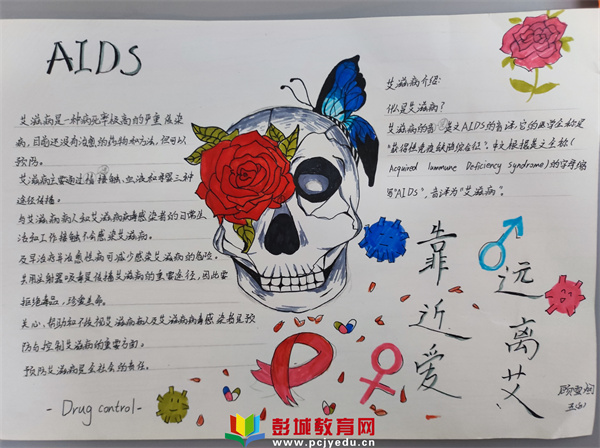 AIDS
艾滋病是一种病死率极高的严重传染
病，目前还没有治愈的药物和方法，但可以
预防。
艾滋病主要通过性接触、血液和母婴三种
途径传播。
与艾滋病病人和艾滋病病毒感染者的日常生
活和工作接触不会感染艾滋病。
及早治疗并治愈性病可减少感染艾滋病的危险。
共用注射器吸毒是传播艾滋病的重要途径，因此要
拒绝毒品，珍爱生命。
关心、帮助和不歧视艾滋病病人及艾滋病病毒感染者是预
防与控制艾滋病的重要方面。
预防艾滋病是全社会的责任。
- Drug control -
艾滋病介绍:
什么是艾滋病？
艾滋病的音 英文AIDS的音译，它的医学全称是
"获得性免疫缺陷综合征"。中文根据英文全称(
Acquired Immune Deficiency Syndrome)的字母缩
写"AIDS"，音译为"艾滋病"。
靠近爱
远离艾
彭城教育网
www.pcjyedu.cn